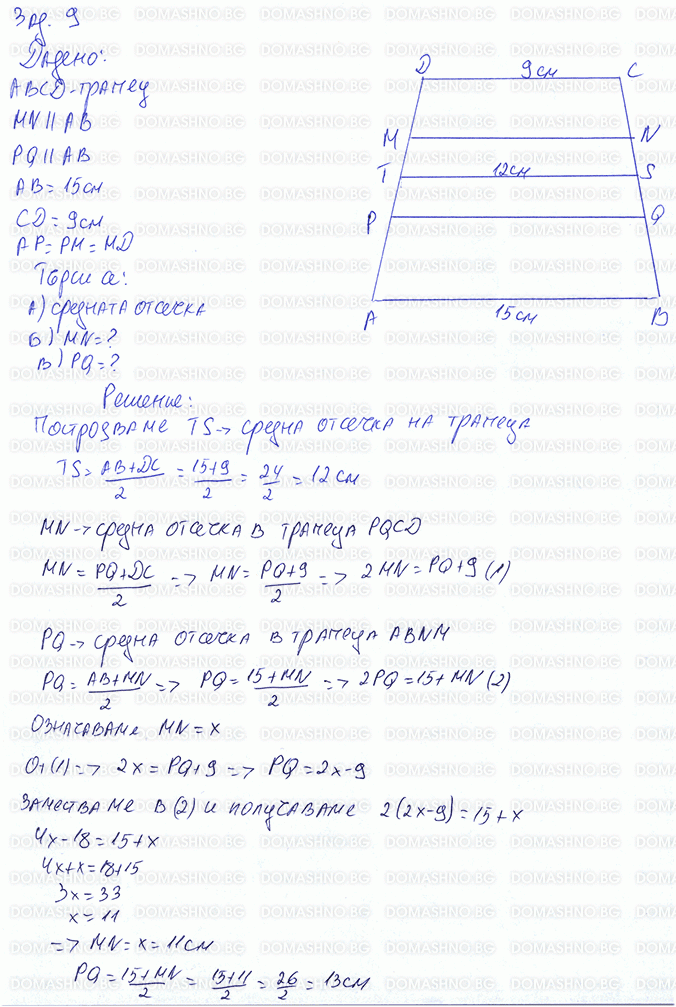 Зад. 9
Дадено:
ABCD-трапец
MN || AB
PQ || AB
AB = 15см
CD = 9см
AP = PM = MD
Търси се:
А) средната отсечка
Б) MN = ?
В) PQ = ?
D 9см C
M N
T 12см S
P Q
A 15см B
Решение:
Построяваме TS → средна отсечка на трапеца
TS = (AB+DC)/2 = (15+9)/2 = 24/2 = 12 см
MN → средна отсечка в трапеца PQCD
MN = (PQ+DC)/2 => MN = (PQ+9)/2 => 2MN = PQ+9 (1)
PQ → средна отсечка в трапеца ABNM
PQ = (AB+MN)/2 => PQ = (15+MN)/2 => 2PQ = 15+MN (2)
Означаваме MN = x
От (1) => 2x = PQ+9 => PQ = 2x-9
Заместваме в (2) и получаваме 2(2x-9) = 15+x
4x-18 = 15+x
4x+x = 18+15
3x = 33
x = 11
=> MN = x = 11см
PQ = (15+MN)/2 = (15+11)/2 = 26/2 = 13см
DOMASHNO.BG